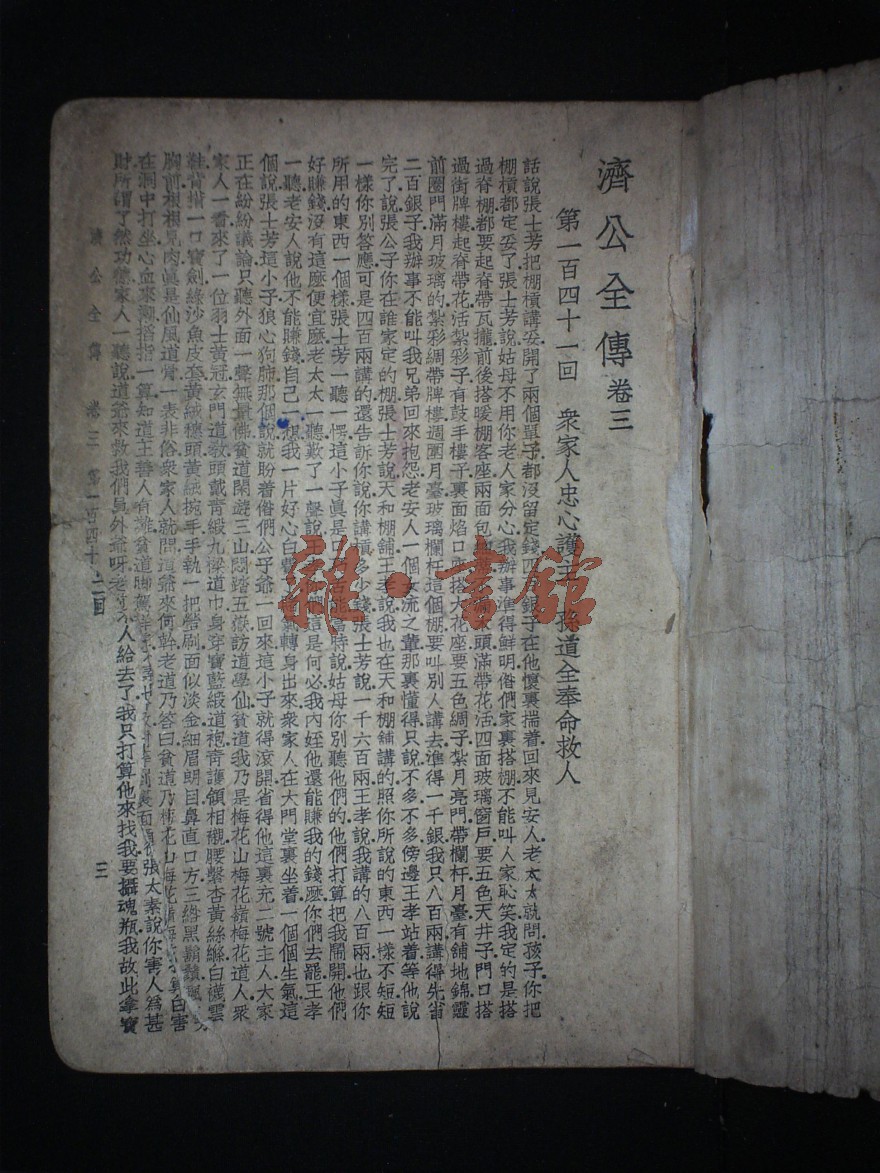 濟公全傳 卷三
第一百四十一回 衆家人忠心護主 孫道全奉命救人
話說張士芳把棚槓講妥開了兩個單子都沒留定錢四銀子在他懷裏揣着回來見安人老太太就問孩子你把
棚槓都定妥了張士芳說姑母不用你老人家分心我辦事準得鮮明俗們家裏搭棚不能叫人家恥笑我定的是搭
過脊棚都要起脊帶瓦攏前後搭暖棚客座兩面包頭滿帶花活四面玻璃窗戶要五色天井子門口搭
過街牌樓起脊帶花活紮彩子有鼓手樓子裏面焰口座搭大花座要五色綢子紮月亮門帶欄杆月臺有舖地錦靈
前圈門滿月玻璃的紮彩綢帶牌樓週圍月臺玻璃欄杆這個棚要叫別人講去準得一千銀我只八百兩講得先省
二百銀子我辦事不能叫我兄弟回來抱怨老安人一個女流之輩那裏懂得只說不多不多傍邊王孝站着等他說
完了說張公子你在誰家定的棚張士芳說天和棚舖王孝說我也在天和棚舖講的照你所說的東西一樣不短短
一樣你別答應可是四百兩講的還告訴你說你講槓多少錢張士芳說一千六百兩王孝說我講的八百兩也跟你
所用的東西一個樣張士芳一聽一愕這小子眞是口巧舌能當時說姑母你別聽他們的他們打算把我鬧開他們
好賺錢沒有這麼便宜麼老太太一聽歎了一聲說王孝你們這是何必我內姪他還能賺我的錢麼你們去罷王孝
一聽老安人說他不能賺錢自己一想我一片好心白費氣轉身出來衆家人在大門堂裏坐着一個個生氣這
個說張士芳這小子狼心狗肺那個說就盼着俗們公子爺一回來這小子就得滾開省得他這裏充二號主人大家
正在紛紛議論只聽外面一聲無量佛貧道閑遊三山悶踏五嶽訪道學仙貧道我乃是梅花山梅花嶺梅花道人衆
家人一看來了一位羽士黃冠玄門道教頭戴靑緞九梁道巾身穿寶藍緞道袍靑護領相襯腰繫杏黃絲縧白襪雲
鞋背揹一口寶劍綠沙魚皮套黃絨穗頭黃絨挽手手執一把螢刷面似淡金細眉朗目鼻直口方三綹黑鬍鬚飄
胸前根根見肉眞是仙風道骨一表非俗衆家人就問道爺來何幹老道乃答曰貧道乃梅花山梅花嶺梅
在洞中打坐心血來潮掐指一算知道主善人有難貧道脚駕祥 張太素說你害人爲甚
財所謂了然功德家人一聽說道爺來救我們員外爺呀老 人給去了我只打算他來找我要攝魂瓶我故此拿寶
濟公全傳 卷三 第一百四十一回
三
雜·書館